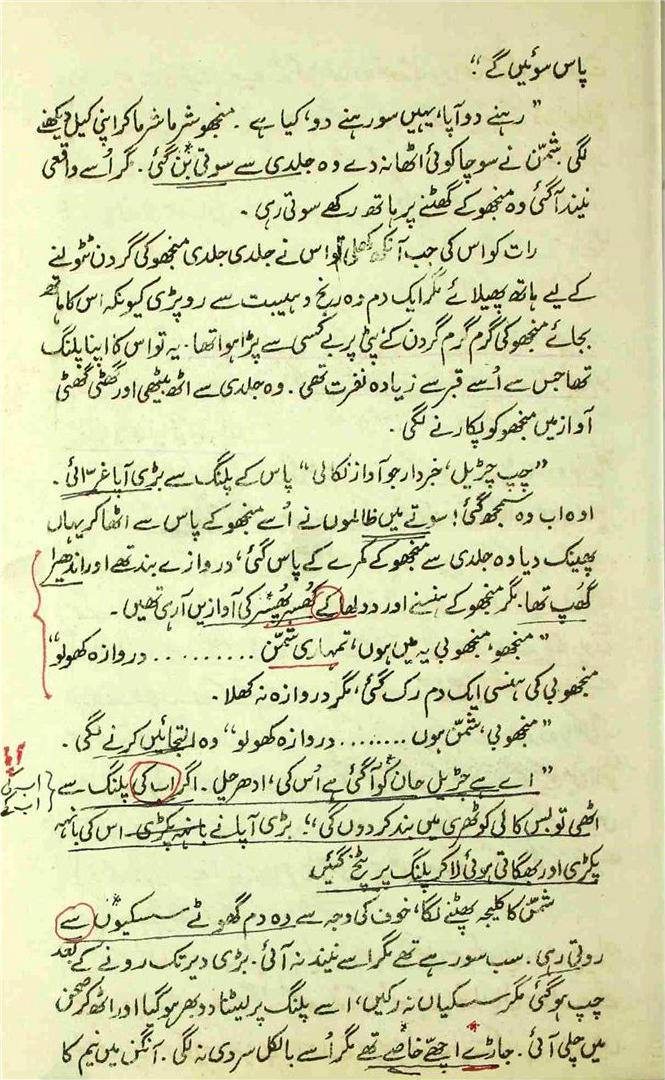 پاس سوئیں گے"۔
"رہنے دو آپا، یہیں سو رہنے دو، کیا ہے۔ منجھو شرما شرما کر اپنی کیل دیکھنے
لگی شمّن نے سوچا کوئی اٹھا نہ دے وہ جلدی سے سوتی بَن گئی۔ مگر اُسے واقعی
نیند آ گئی وہ منجھو کے گھٹنے پر ہاتھ رکھے سوتی رہی۔
رات کو اس کی جب آنکھ کھلی تو اس نے جلدی جلدی منجھو کی گردن ٹٹولنے
کے لیے ہاتھ پھیلائے مگر ایک دم وہ رنج و ہیبت سے رو پڑی کیونکہ اس کا ہاتھ
بجائے منجھو کی گرم گرم گردن کے پٹی پر بے کسی سے پڑا ہوا تھا۔ یہ تو اس کا اپنا پلنگ
تھا جس سے اُسے قبر سے زیادہ نفرت تھی۔ وہ جلدی سے اٹھ بیٹھی اور گھٹی گھٹی
آواز میں منجھو کو پکارنے لگی۔
"چپ چڑیل، خبردار جو آواز نکالی" پاس کے پلنگ سے بڑی آپا غرّائی۔
اوہ اب وہ سمجھ گئی! سوتے میں ظالموں نے اُسے منجھو کے پاس سے اٹھا کر یہاں
پھینک دیا وہ جلدی سے منجھو کے کمرے کے پاس گئی، دروازے بند تھے اور اندھیرا
گھُپ تھا۔ مگر منجھو کے ہنسنے اور دولھا کے کھُسر پھُسر کی آوازیں آ رہی تھیں۔
"منجھو، منجھو بی یہ میں ہوں، تمہاری شمّن ......... دروازہ کھولو"
منجھو بی کی ہنسی ایک دم رک گئی، مگر دروازہ نہ کھلا۔
"منجھو بی، شمّن ہوں ........ دروازہ کھولو" وہ التجائیں کرنے لگی۔
"اے ہے چڑیل جان کو آ گئی ہے اُس کی، ادھر چلی۔ اگر اب کی پلنگ سے
اب کی
اب کے
اٹھی تو بس کالی کوٹھری میں بند کر دوں گی"۔ بڑی آپا نے بانہہ پکڑی۔ اس کی بانہہ
پکڑی اور بھگاتی ہوئی لا کر پلنگ پر پٹخ گئیں
شمّن کا کلیجہ پھٹنے لگا، خوف کی وجہ سے وہ دم گھوٹے سسکیوں سے
روتی رہی۔ سب سو رہے تھے مگر اسے نیند نہ آئی۔ بڑی دیر تک رونے کے بعد
چپ ہو گئی مگر سسکیاں نہ رکیں، اسے پلنگ پر لیٹنا دوبھر ہو گیا اور اٹھ کر صحن
میں چلی آئی۔ جاڑے اچھے خاصے تھے مگر اُسے بالکل سردی نہ لگی۔ آنگن میں نیم کا